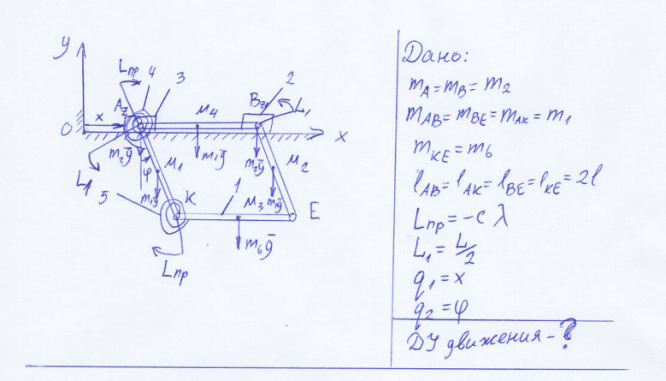 y
Lпр
4
3
2
A₃
B₃
L₁
μ₄
O
x
x
m₂g̅
m₁g̅
m₂g̅
μ₁
μ₂
L₁
φ
m₁g̅
m₁g̅
1
5
K
μ₃
E
m₆g̅
Lпр
Дано:
m_A = m_B = m₂
m_AB = m_BE = m_AK = m₁
m_KE = m₆
l_AB = l_AK = l_BE = l_KE = 2l
Lпр = -c λ
L₁ = L/2
q₁ = x
q₂ = φ
ДУ движения - ?